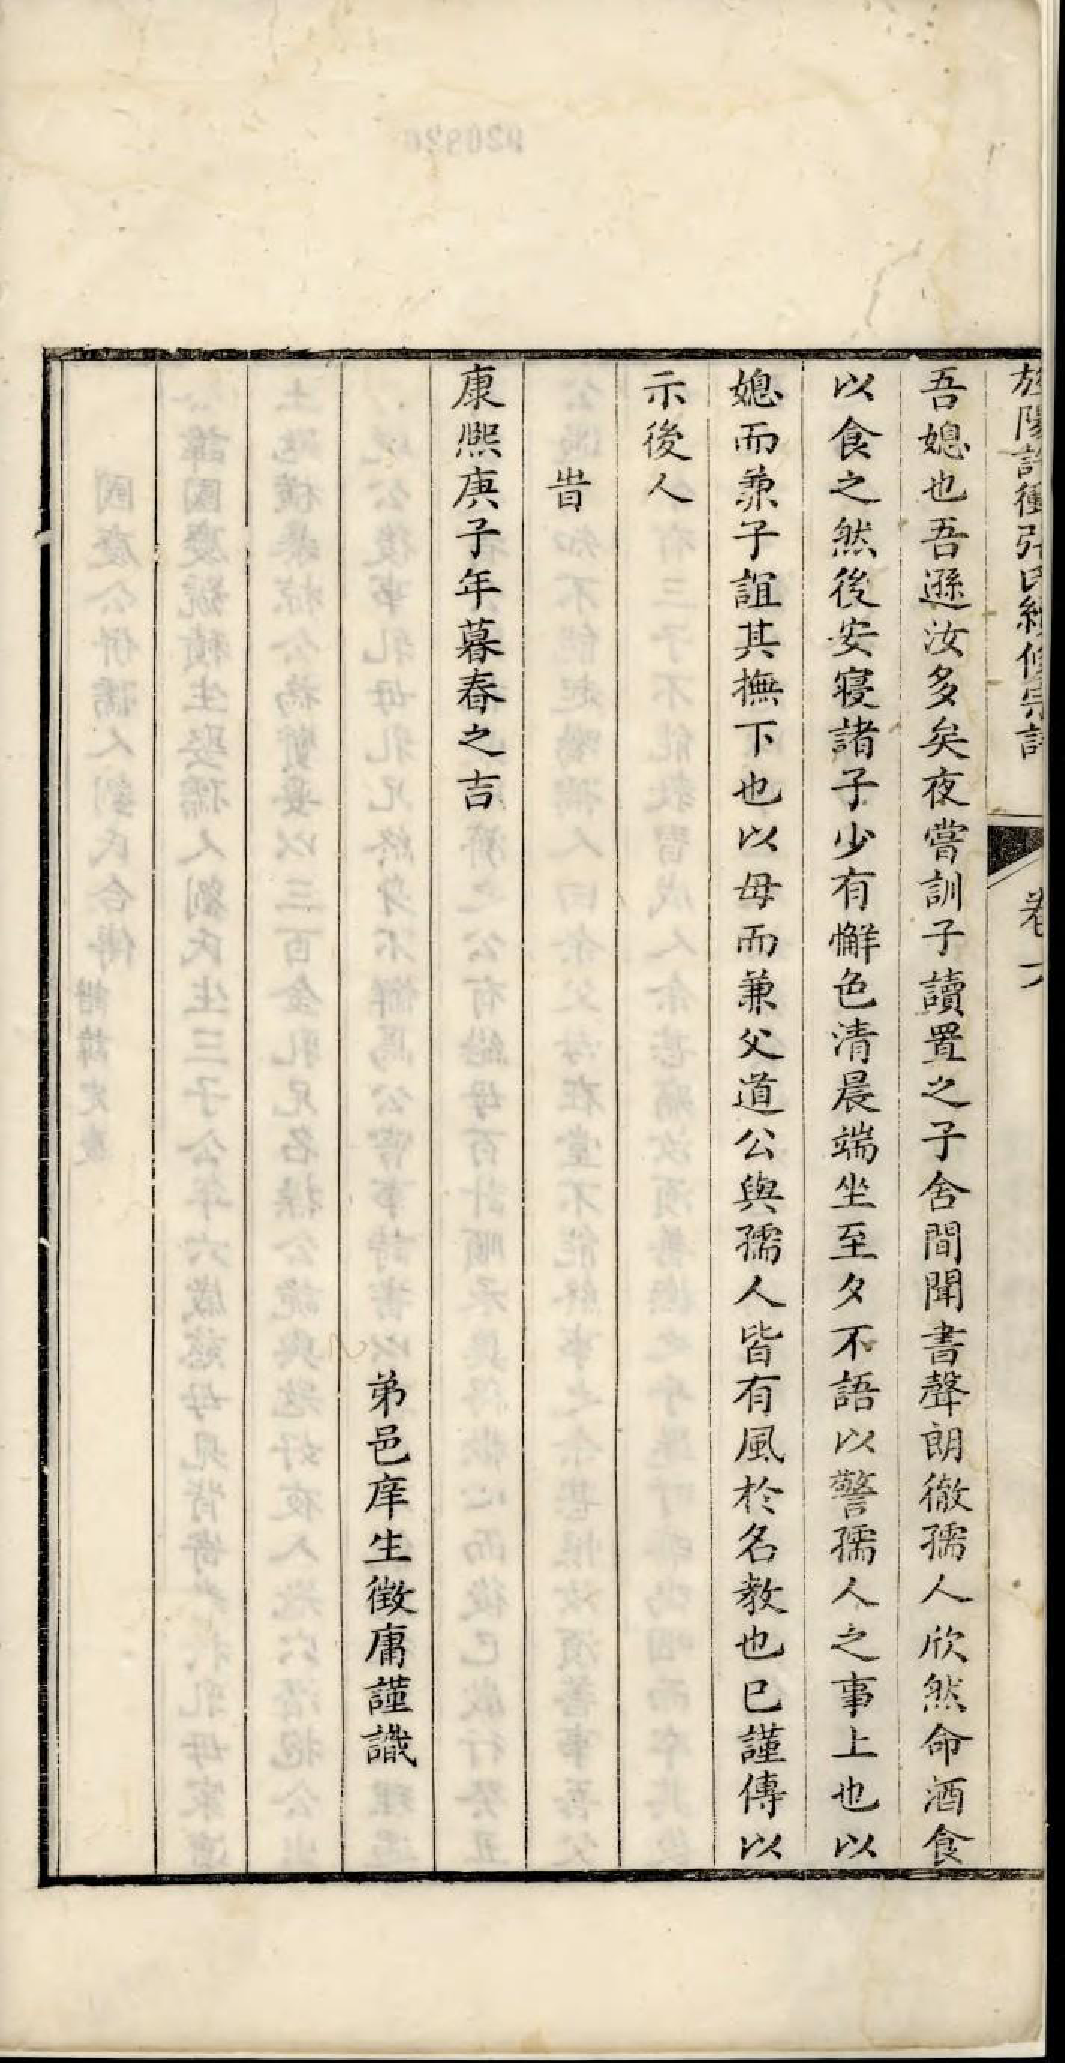 旌陽許衝張氏續修宗譜 卷六
吾媳也吾遜汝多矣夜嘗訓子讀置之子舍間聞書聲朗徹孺人欣然命酒食
以食之然後安寝諸子少有懈色清晨端坐至夕不語以警孺人之事上也以
媳而兼子誼其撫下也以母而兼父道公與孺人皆有風於名教也已謹傳以
示後人
旹
康熙庚子年暮春之吉
弟邑庠生徵庸謹識